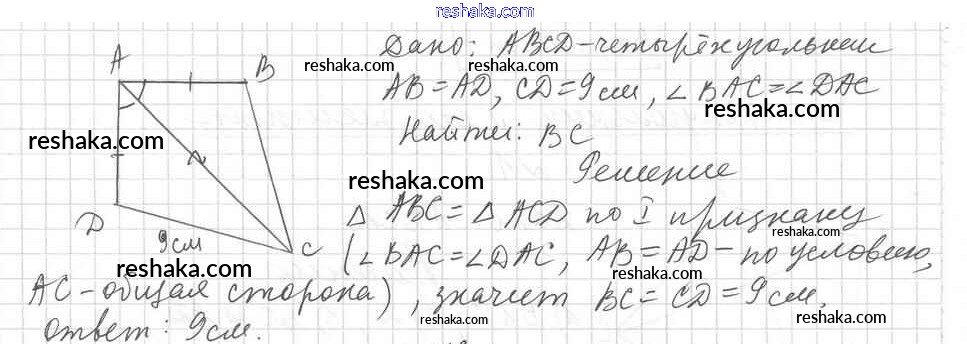 reshaka.com
Дано: ABCD - четырёхугольник
reshaka.com
reshaka.com
A
B
AB = AD, CD = 9 см, ∠BAC = ∠DAC
reshaka.com
reshaka.com
Найти: BC
reshaka.com
Решение
reshaka.com
D
△ABC = △ACD по I признаку
reshaka.com
9 см
C
(∠BAC = ∠DAC, AB = AD - по условию,
reshaka.com
reshaka.com
AC - общая сторона), значит BC = CD = 9 см.
reshaka.com
Ответ: 9 см.
reshaka.com